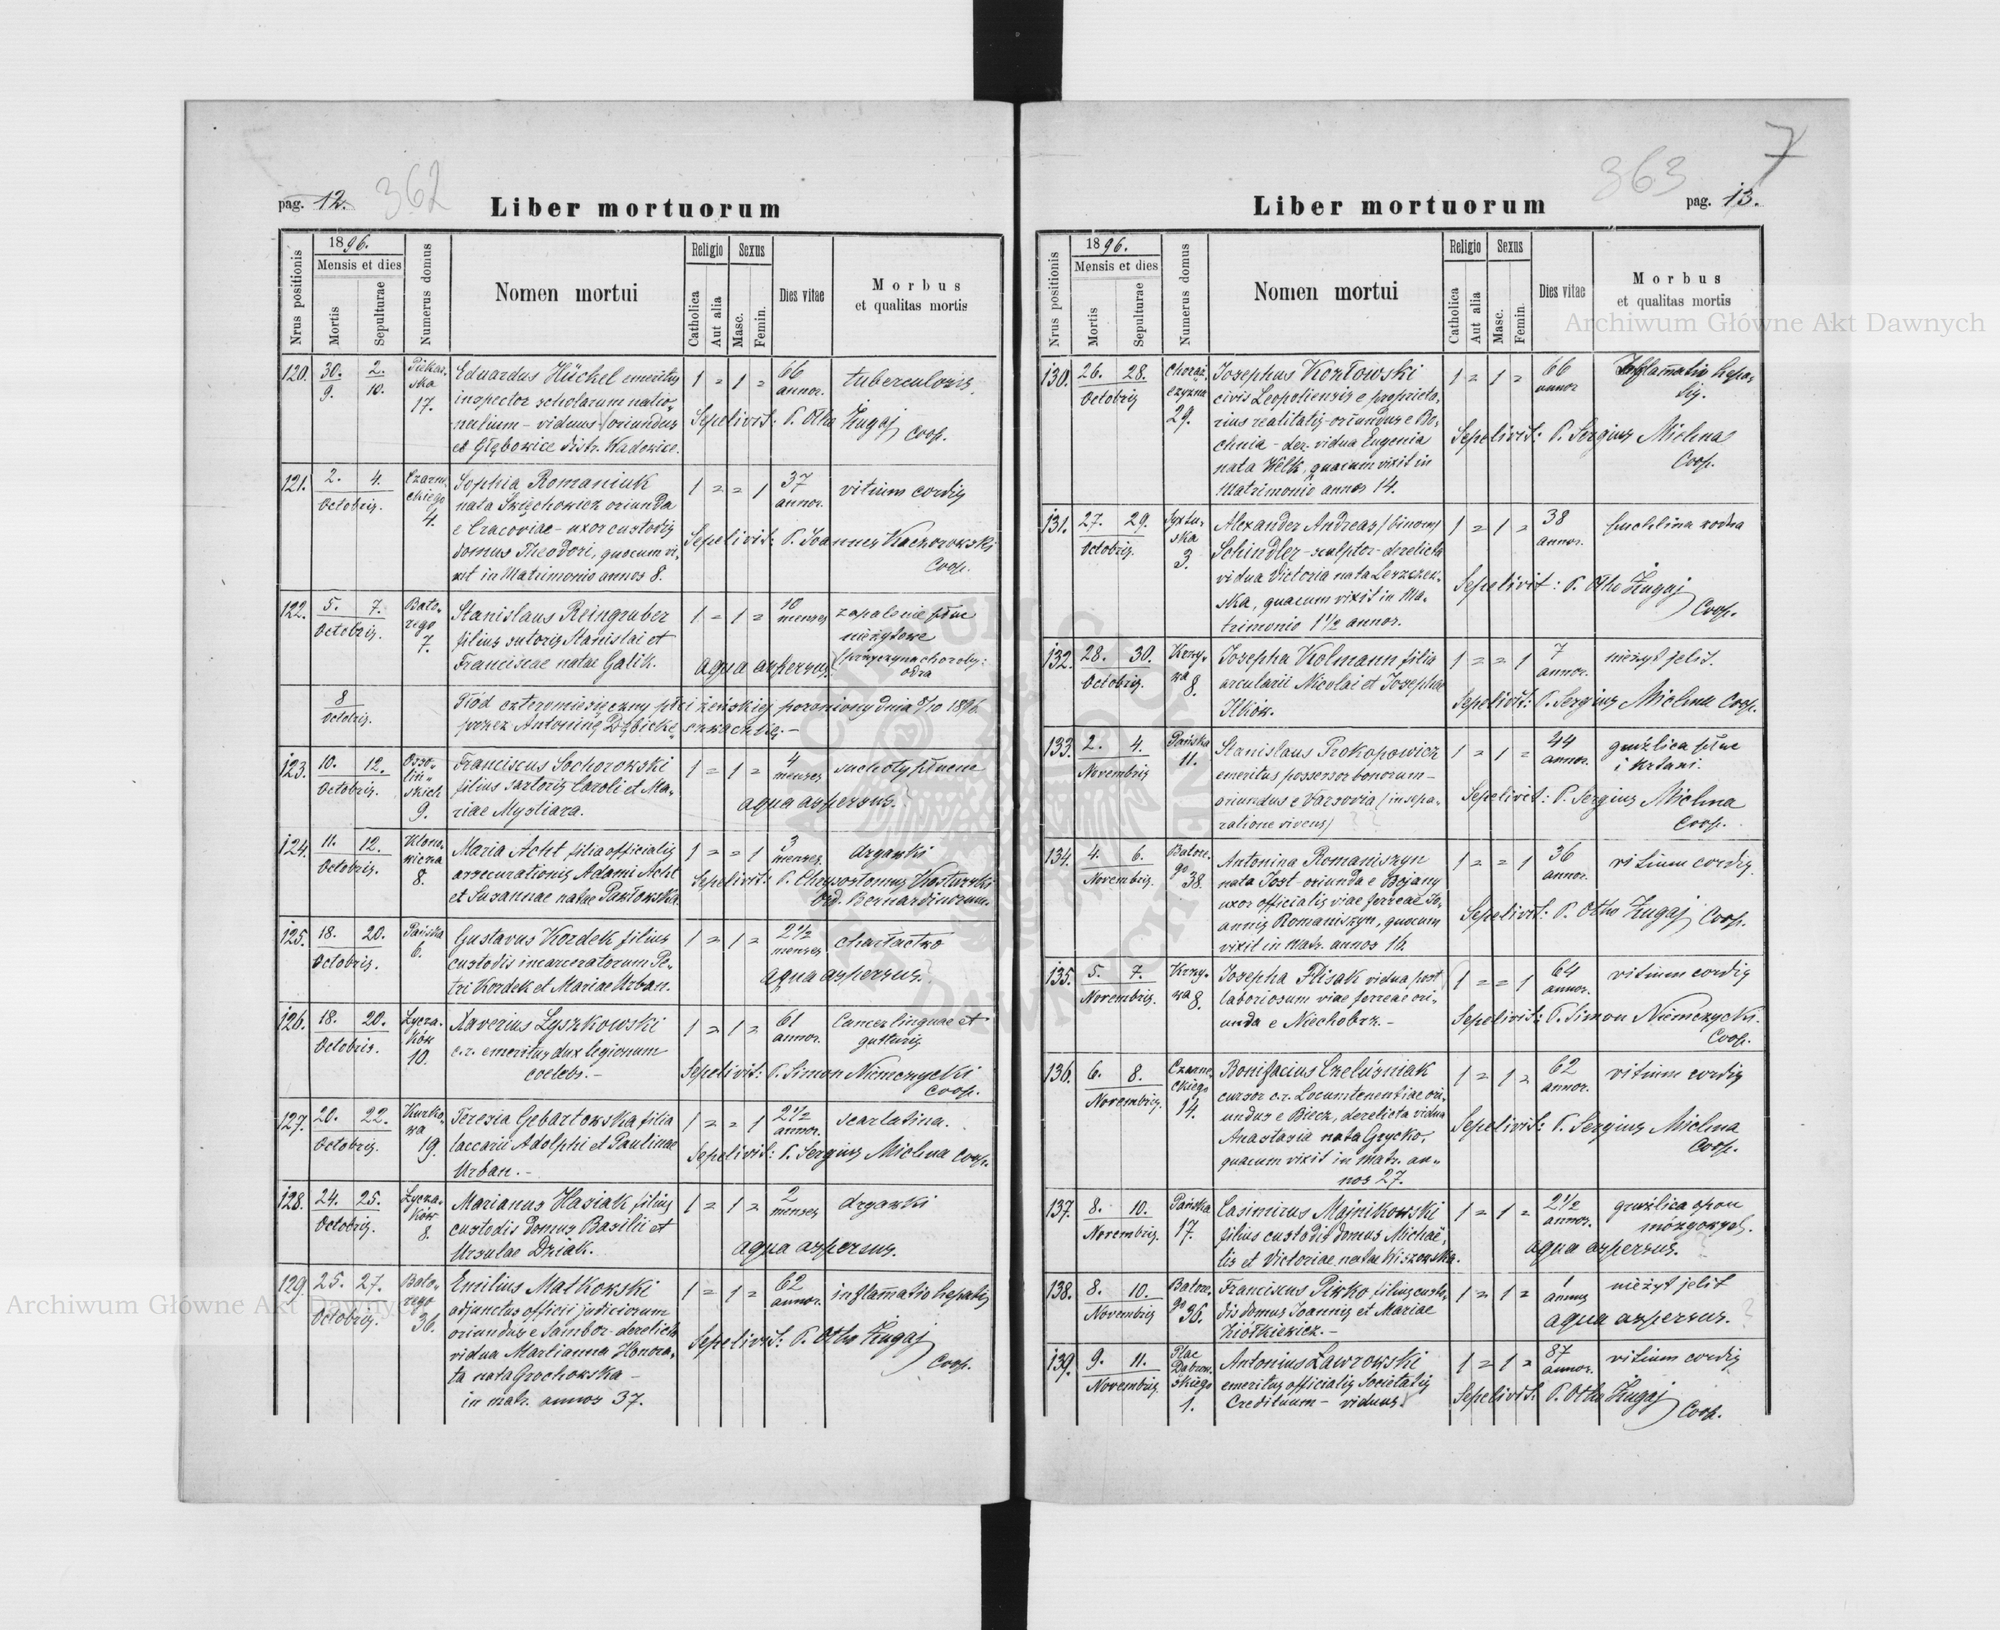 pag. 12. 362
Liber mortuorum
Nrus positionis
1896.
Mensis et dies
Mortis
Sepulturae
Numerus domus
Nomen mortui
Religio
Catholica
Aut alia
Sexus
Masc.
Femin.
Dies vitae
Morbus
et qualitas mortis
120. 30. 2. Piekar- Eduardus Hückel emeritus 1 = 1 = 66 tuberculosis
9. 10. ska inspector scholarum natio- annor.
17. nalium - viduus (oriundus Sepelivit: P. Otho Żugaj Coop.
ex Głębowice distr. Wadowice.
121. 2. 4. Czarne- Sophia Romaniuk 1 = = 1 37 vitium cordis
Octobris. ckiego nata Święchowicz oriunda annor.
4. e Cracoviae - uxor custodis Sepelivit: P. Joannes Kaczorowski
domus Theodori, quocum vi- Coop.
xit in Matrimonio annos 8.
122. 5. 7. Bato- Stanislaus Reingruber 1 = 1 = 10 zapalenie płuc
Octobris. rego filius sutoris Stanislai et menses nieżytowe
7. Franciscae natae Galik. aqua aspersus. (przyczyna choroby:
odra
8 Płód czteromiesięczny płci żeńskiej poroniony dnia 8/10 1896
Octobris. przez Antoninę Dębicką szwaczkę. -
123. 10. 12. Osso- Franciscus Sochorowski 1 = 1 = 4 suchoty płucne
Octobris. liń- filius sartoris Caroli et Ma- menses
skich riae Mysliara. aqua aspersus.
9.
124. 11. 12. Klono- Maria Acht filia officialis 1 = = 1 3 drgawki
Octobris. wicza assecurationis Adami Acht menses.
8. et Susannae natae Pawłowska. Sepelivit: P. Chrysostomus
Ord. Bernardinorum.
125. 18. 20. Pańska Gustavus Kordek filius 1 = 1 = 2 1/2 charłactwo
Octobris. 6. custodis incarceratorum Pe- menses
tri Kordek et Mariae Urban. aqua aspersus.
126. 18. 20. Łycza- Xaverius Łyszkowski 1 = 1 = 61 Cancer linguae et
Octobris. ków c.r. emeritus dux legionum annor. gutturis
10. coelebs. - Sepelivit: P. Simon Niemczycki
Coop.
127. 20. 22. Kurko- Teresia Gebartowska filia 1 = = 1 2 1/2 scarlatina.
Octobris. wa laccarii Adolphi et Paulinae annor.
19. Urban. - Sepelivit: P. Sergius Michna Coop.
128. 24. 25. Łycza- Marianus Hasiak filius 1 = 1 = 2 drgawki
Octobris. ków custodis domus Basilii et menses
8. Ursulae Dziak. aqua aspersus.
129. 25. 27. Bato- Emilius Małkowski 1 = 1 = 62 inflamatio hepatis
Octobris. rego adjunctus officii judiciorum annor.
36. oriundus e Sambor - derelicta Sepelivit: P. Otho Żugaj
vidua Marianna Honora- Coop.
ta nata Grochowska -
in matr. annos 37.
7
363
pag. 13.
Liber mortuorum
Nrus positionis
1896.
Mensis et dies
Mortis
Sepulturae
Numerus domus
Nomen mortui
Religio
Catholica
Aut alia
Sexus
Masc.
Femin.
Dies vitae
Morbus
et qualitas mortis
130. 26. 28. Chorąż- Josephus Kozłowski 1 = 1 = 66 Inflamatio hepa-
Octobris czyzna civis Leopoliensis e proprieta- annor tis.
29. rius realitatis - oriundus e Bo- Sepelivit: P. Sergius Michna
chnia - der. vidua Eugenia Coop.
nata Welk, quacum vixit in
Matrimonio annos 14.
131. 27. 29. Syxtu- Alexander Andreas (binom) 1 = 1 = 38
Octobris. ska Schindler - sculptor - derelicta annor.
3. vidua Victoria nata Leszczew- Sepelivit: P. Otho Żugaj
ska, quacum vixit in Ma- Coop.
trimonio 1 1/2 annos.
132. 28. 30. Krzy- Josepha Kolmann filia 1 = = 1 7 nieżyt jelit.
Octobris. wa arcularii Nicolai et Josephae annor.
8. Ilków. Sepelivit: P. Sergius Michna Coop.
133. 2. 4. Pańska Stanislaus Prokopowicz 1 = 1 = 44 gruźlica płuc
Novembris 11. emeritus possessor bonorum - annor. i krtani.
oriundus e Varsovia (in sepa- Sepelivit: P. Sergius Michna
ratione vivens) Coop.
134. 4. 6. Batore- Antonina Romaniszyn 1 = = 1 36 vitium cordis.
Novembris. go nata Jost - oriunda e Bojany annor.
38. uxor officialis viae ferreae Jo- Sepelivit: P. Otho Żugaj Coop.
annis Romaniszyn, quocum
vixit in matr. annos 16.
135. 5. 7. Krzy- Josepha Flisak vidua post 1 = = 1 64 vitium cordis
Novembris. wa laboriosum viae ferreae ori- annor.
8. unda e Niechobrz. - Sepelivit: P. Simon Niemczycki.
Coop.
136. 6. 8. Czarne- Bonifacius Cześniak 1 = 1 = 62 vitium cordis
Novembris. ckiego cursor c.r. Locumtenentiae ori- annor.
14. undus e Biecz, derelicta vidua Sepelivit: P. Sergius Michna
Anastasia nata Grycko, Coop.
quacum vixit in matr. an-
nos 27.
137. 8. 10. Pańska Casimirus Majnikowski 1 = 1 = 2 1/2 gruźlica opon
Novembris. 17. filius custodis domus Michaë- annor. mózgowych.
lis et Victoriae natae Kiszowska. aqua aspersus.
138. 8. 10. Batore- Franciscus Pirko filius custo- 1 = 1 = 1 nieżyt jelit
Novembris go dis domus Joannis et Mariae annus
36. Ziółkiewicz. - aqua aspersus.
139. 9. 11. Plac Antonius Ławrowski 1 = 1 = 87 vitium cordis
Novembris Dąbrow- emeritus officialis Societatis annor.
skiego Credituum - viduus. Sepelivit. P. Otho Żugaj
1. Coop.
Archiwum Główne Akt Dawnych
Archiwum Główne Akt Dawnych